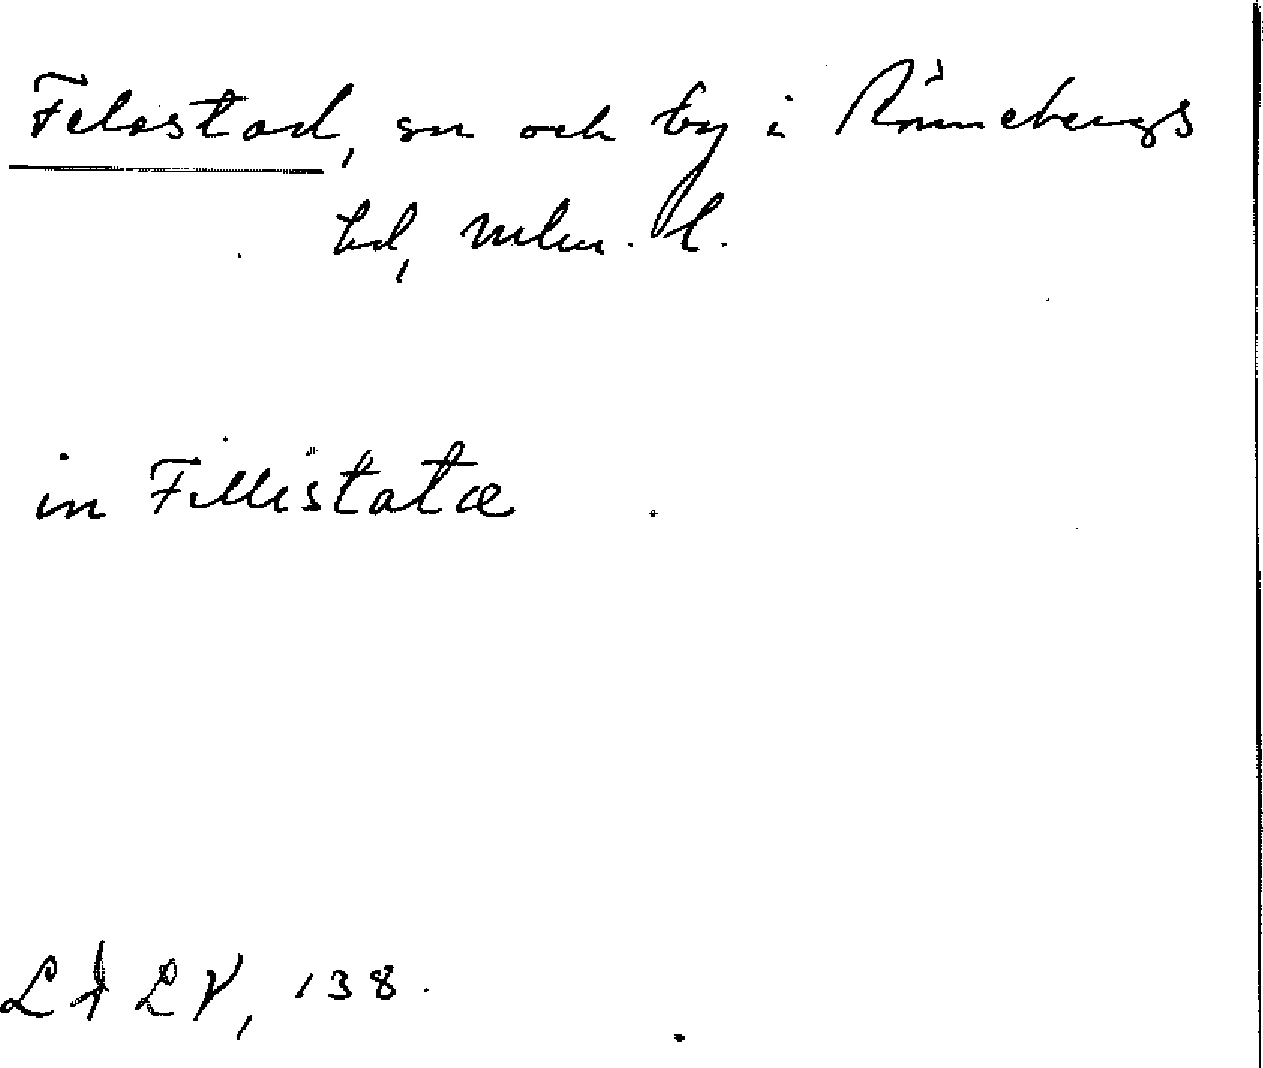 Felestad, sn och by i Rönnebergs
hd, Mlm. l.
in Fillistatæ
LÄLV, 138.